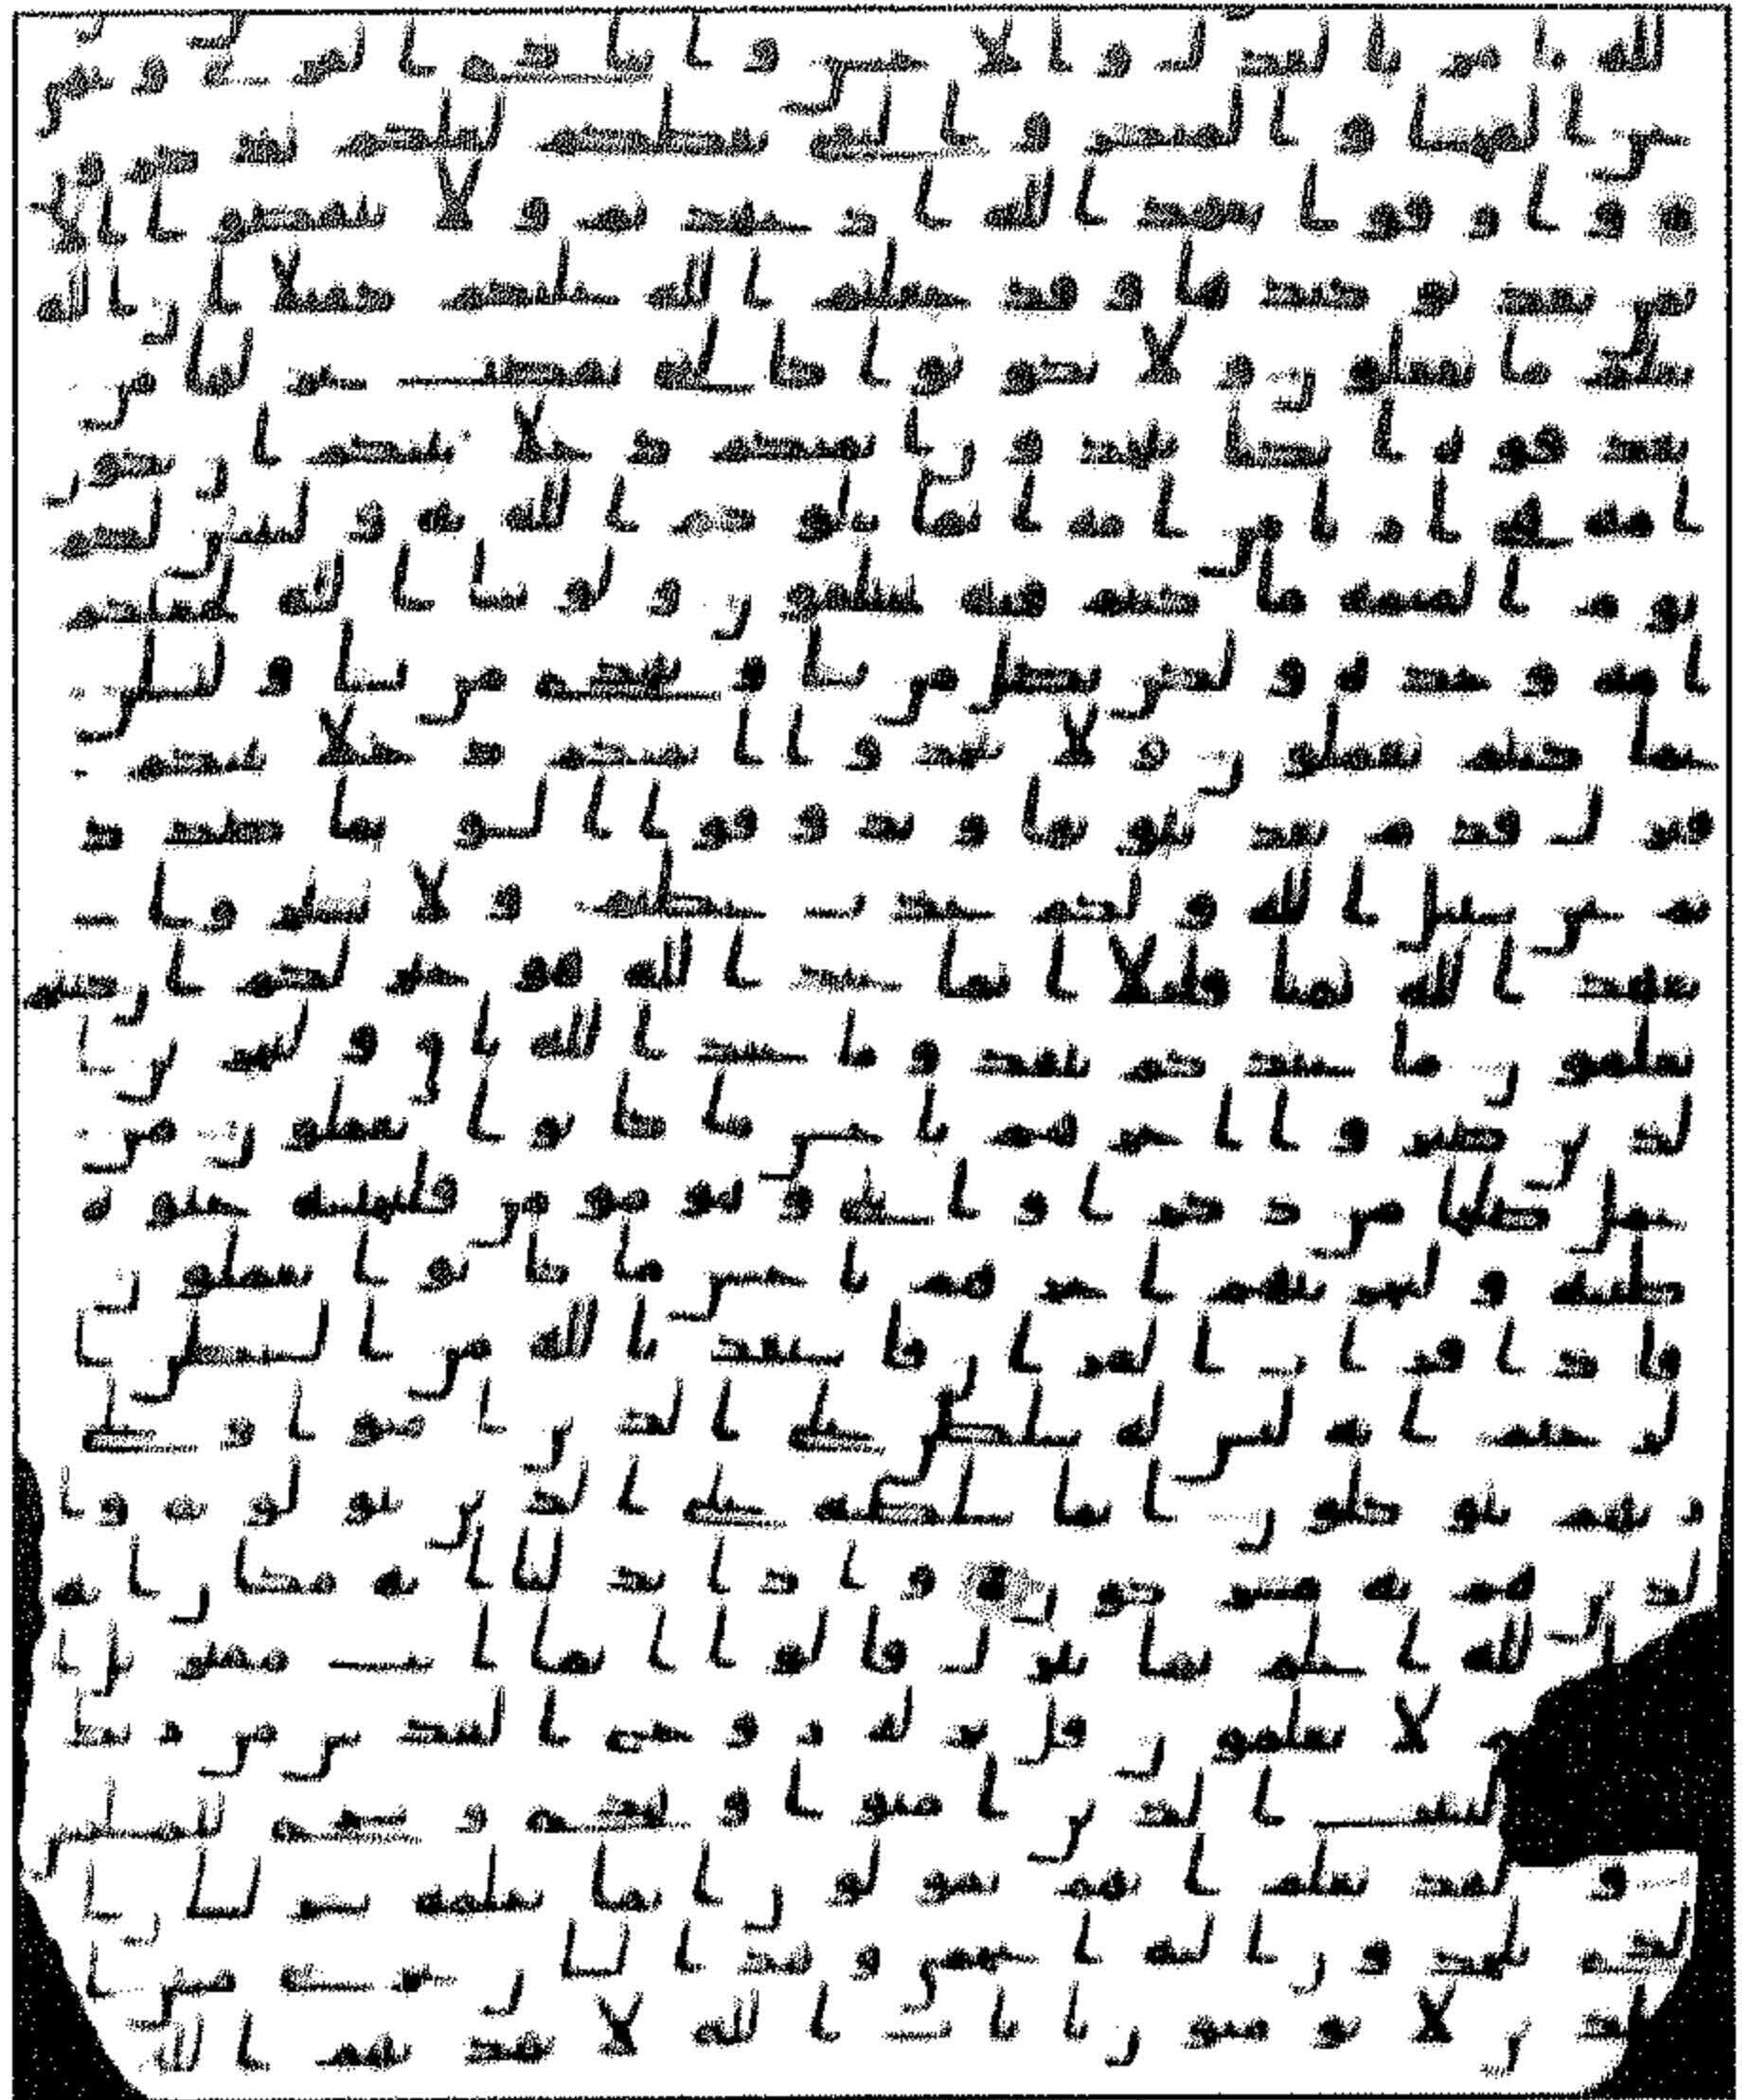 الله يامر بالعدل والاحسن وايتاى ذى القربى وينهى
عن الفحشا والمنكر والبغى يعظكم لعلكم تذكرو
ن واوفوا بعهد الله اذا عهدتم ولا تنقضوا الا
يمن بعد توكيدها وقد جعلتم الله عليكم كفيلا ان الله
يعلم ما تفعلون ولا تكونوا كالتى نقضت غزلها من
بعد قوة انكثا تتخذون ايمنكم دخلا بينكم ان تكون
امة هى اربى من امة انما يبلوكم الله به وليبينن لكم
يوم القيمة ما كنتم فيه تختلفون ولو شا الله لجعلكم
امة وحدة ولكن يضل من يشا ويهدى من يشا ولتسلن
عما كنتم تعملون ولا تتخذوا ايمنكم دخلا بينكم
فتزل قدم بعد ثبوتها وتذوقوا السو بما صدد
تم عن سبيل الله ولكم عذاب عظيم ولا تشتروا ب
عهد الله ثمنا قليلا انما عند الله هو خير لكم ان كنتم
تعلمون ما عندكم ينفد وما عند الله باق ولنجزين ا
لذين صبروا اجرهم باحسن ما كانوا يعملون من
عمل صلحا من ذكر او انثى وهو مومن فلنحيينه حيوة
طيبة ولنجزينهم اجرهم باحسن ما كانوا يعملون
فاذا قرات القران فاستعذ بالله من الشيطن ا
لرجيم انه ليس له سلطن على الذين امنوا وعلى
ربهم يتوكلون انما سلطنه على الذين يتولونه وا
لذين هم به مشركون واذا بدلنا اية مكان اية
الله اعلم بما ينزل قالوا انما انت مفتر بل ا
م لا يعلمون قل نزله روح القدس من ربك با
ليثبت الذين امنوا وهدى وبشرى للمسلمين
ولقد نعلم انهم يقولون انما يعلمه بشر لسان ا
لذى يلحدون اليه اعجمى وهذا لسان عربى مبين ا
لذين لا يومنون بايت الله لا يهديهم الله